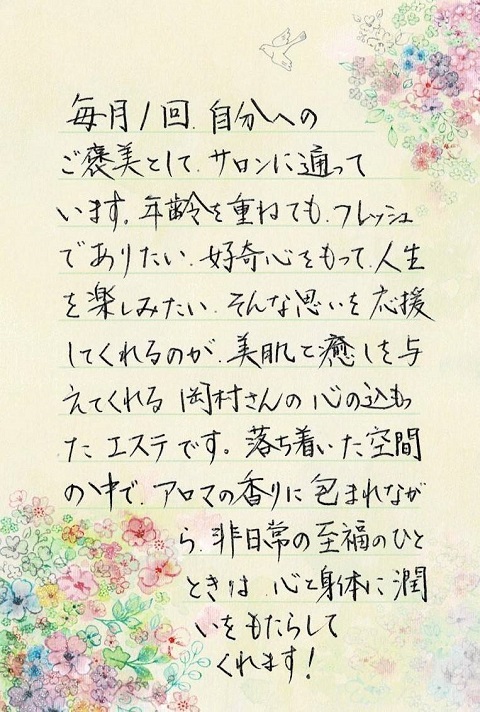 毎月1回、自分への
ご褒美として、サロンに通って
います。年齢を重ねても、フレッシュ
でありたい、好奇心をもって、人生
を楽しみたい、そんな思いを応援
してくれるのが、美肌と癒しを与
えてくれる岡村さんの心の込もっ
たエステです。落ち着いた空間
の中で、アロマの香りに包まれなが
ら、非日常の至福のひと
ときは、心と身体に潤
いをもたらして
くれます!